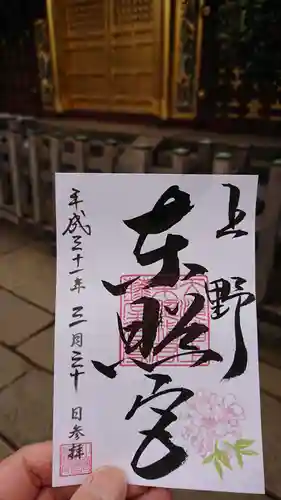 上野
東照宮
平成三十一年三月三十日参拝